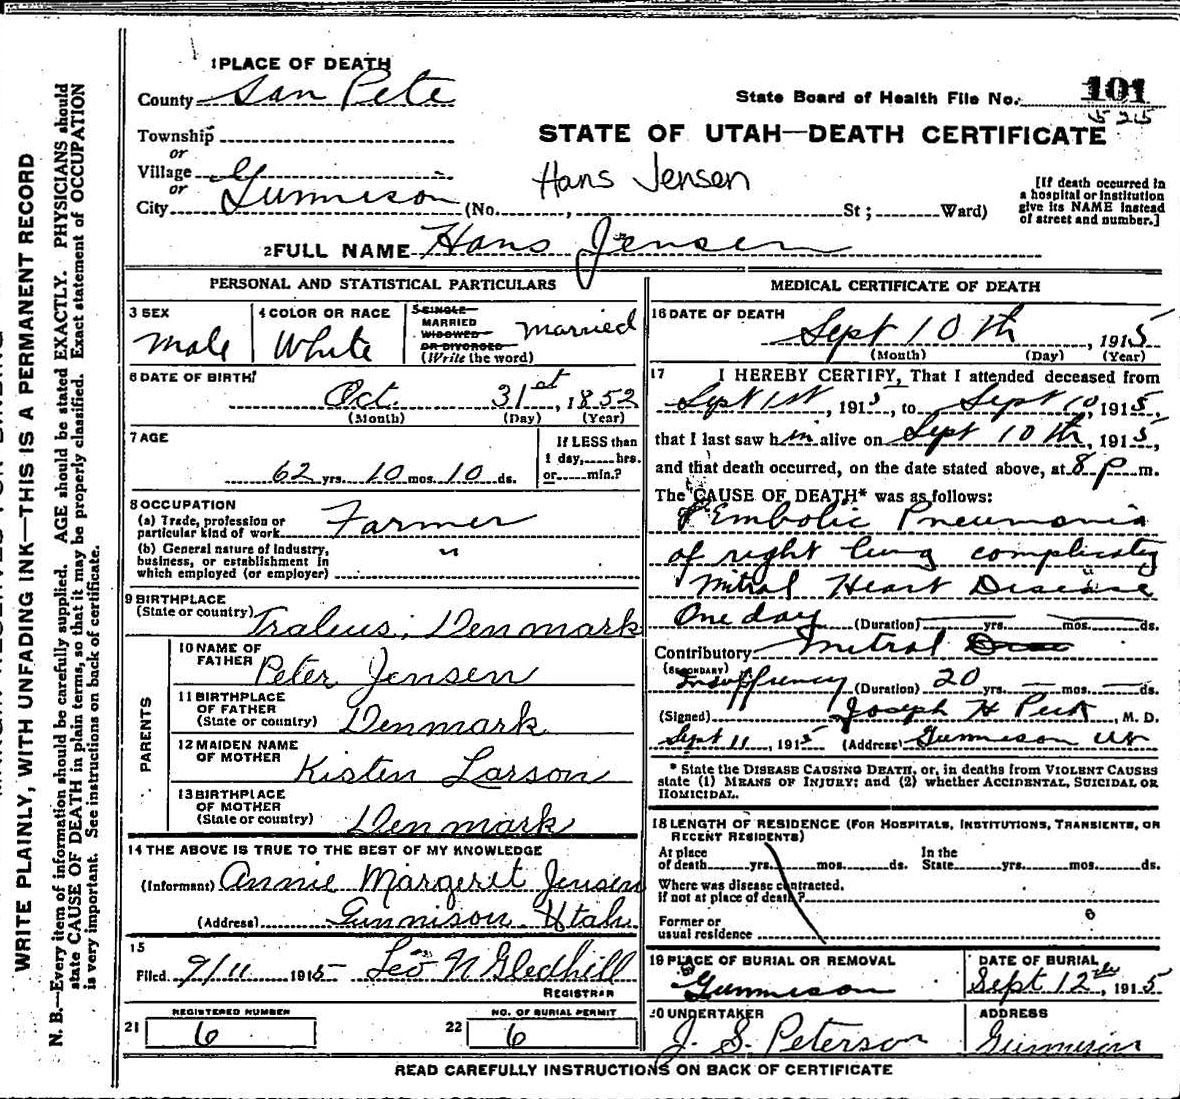 1 PLACE OF DEATH
County San Pete
State Board of Health File No. 101
525
Township
or
Village
or
City Gunnison (No. , St; Ward)
STATE OF UTAH—DEATH CERTIFICATE
Hans Jensen
[If death occurred in
a hospital or institution
give its NAME instead
of street and number.]
2 FULL NAME Hans Jensen
PERSONAL AND STATISTICAL PARTICULARS
3 SEX
Male
4 COLOR OR RACE
White
5 SINGLE
MARRIED
WIDOWED
OR DIVORCED
(Write the word)
married
6 DATE OF BIRTH
Oct. 31st, 1852
(Month) (Day) (Year)
7 AGE
62 yrs. 10 mos. 10 ds.
If LESS than
1 day, hrs.
or min.?
8 OCCUPATION
(a) Trade, profession or
particular kind of work Farmer
(b) General nature of industry,
business, or establishment in
which employed (or employer) "
9 BIRTHPLACE
(State or country) Denmark
PARENTS
10 NAME OF
FATHER Peter Jensen
11 BIRTHPLACE
OF FATHER
(State or country) Denmark
12 MAIDEN NAME
OF MOTHER Kisten Larson
13 BIRTHPLACE
OF MOTHER
(State or country) Denmark
14 THE ABOVE IS TRUE TO THE BEST OF MY KNOWLEDGE
(Informant) Annie Margeret Jensen
(Address) Gunnison Utah
15
Filed 9/11 1915 Leo N Gledhill
REGISTRAR
21 REGISTERED NUMBER
6
22 NO. OF BURIAL PERMIT
6
MEDICAL CERTIFICATE OF DEATH
16 DATE OF DEATH
Sept 10th, 1915
(Month) (Day) (Year)
17 I HEREBY CERTIFY, That I attended deceased from
Sept 1st, 1915, to Sept 10, 1915,
that I last saw him alive on Sept 10th, 1915,
and that death occurred, on the date stated above, at 8 p m.
The CAUSE OF DEATH* was as follows:
Embolic Pneumonia
of right lung complicating
Mitral Heart Disease
One day (Duration) yrs. mos. ds.
Contributory Mitral
(SECONDARY)
Insuffiency (Duration) 20 yrs. — mos. — ds.
(Signed) Joseph H Peck, M. D.
Sept 11, 1915 (Address) Gunnison Ut
* State the DISEASE CAUSING DEATH, or, in deaths from VIOLENT CAUSES
state (1) MEANS OF INJURY; and (2) whether ACCIDENTAL, SUICIDAL OR
HOMICIDAL.
18 LENGTH OF RESIDENCE (FOR HOSPITALS, INSTITUTIONS, TRANSIENTS, OR
RECENT RESIDENTS)
At place
of death yrs. mos. ds.
In the
State yrs. mos. ds.
Where was disease contracted.
if not at place of death?
Former or
usual residence
19 PLACE OF BURIAL OR REMOVAL
Gunnison
DATE OF BURIAL
Sept 12th, 1915
20 UNDERTAKER
J. S. Peterson
ADDRESS
Gunnison
READ CAREFULLY INSTRUCTIONS ON BACK OF CERTIFICATE
WRITE PLAINLY, WITH UNFADING INK—THIS IS A PERMANENT RECORD
N. B.—Every item of information should be carefully supplied. AGE should be stated EXACTLY. PHYSICIANS should
state CAUSE OF DEATH in plain terms, so that it may be properly classified. Exact statement of OCCUPATION
is very important. See instructions on back of certificate.